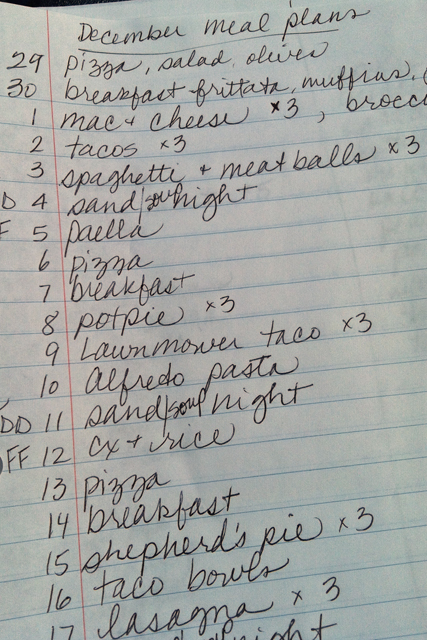 December meal plans
29 pizza, salad, olives
30 breakfast frittata, muffins,
1 mac + cheese x3, brocc
2 tacos x3
3 spaghetti + meatballs x3
D 4 sand/soup night
F 5 paella
6 pizza
7 breakfast
8 potpie x3
9 Lawnmower taco x3
10 alfredo pasta
DD 11 sand/soup night
FF 12 cx + rice
13 pizza
14 breakfast
15 shepherd's pie x3
16 taco bowls
17 lasagna x 3
night